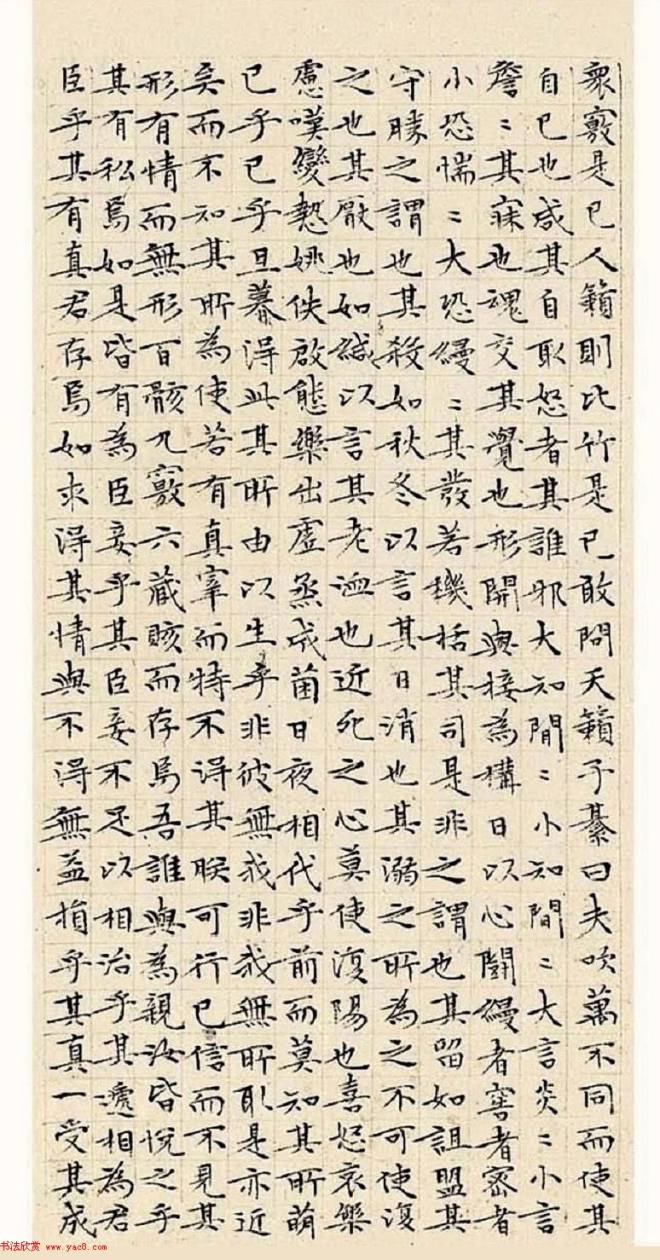 衆竅是已人籟則比竹是已敢問天籟子綦曰夫吹萬不同而使其
自已也咸其自取怒者其誰邪大知閒〻小知間〻大言炎〻小言
詹〻其寐也魂交其覺也形開與接為構日以心鬭縵者窖者密者
小恐惴〻大恐縵〻其發若機栝其司是非之謂也其留如詛盟其
守勝之謂也其殺如秋冬以言其日消也其溺之所為之不可使復
之也其厭也如緘以言其老洫也近死之心莫使復陽也喜怒哀樂
慮嘆變慹姚佚啟態樂出虛蒸成菌日夜相代乎前而莫知其所萌
已乎已乎旦暮得此其所由以生乎非彼無我非我無所取是亦近
矣而不知其所為使若有真宰而特不得其眹可行已信而不見其
形有情而無形百骸九竅六藏賅而存焉吾誰與為親汝皆悅之乎
其有私焉如是皆有為臣妾乎其臣妾不足以相治乎其遞相為君
臣乎其有真君存焉如求得其情與不得無益損乎其真一受其成
书法欣赏 www.yac8.com